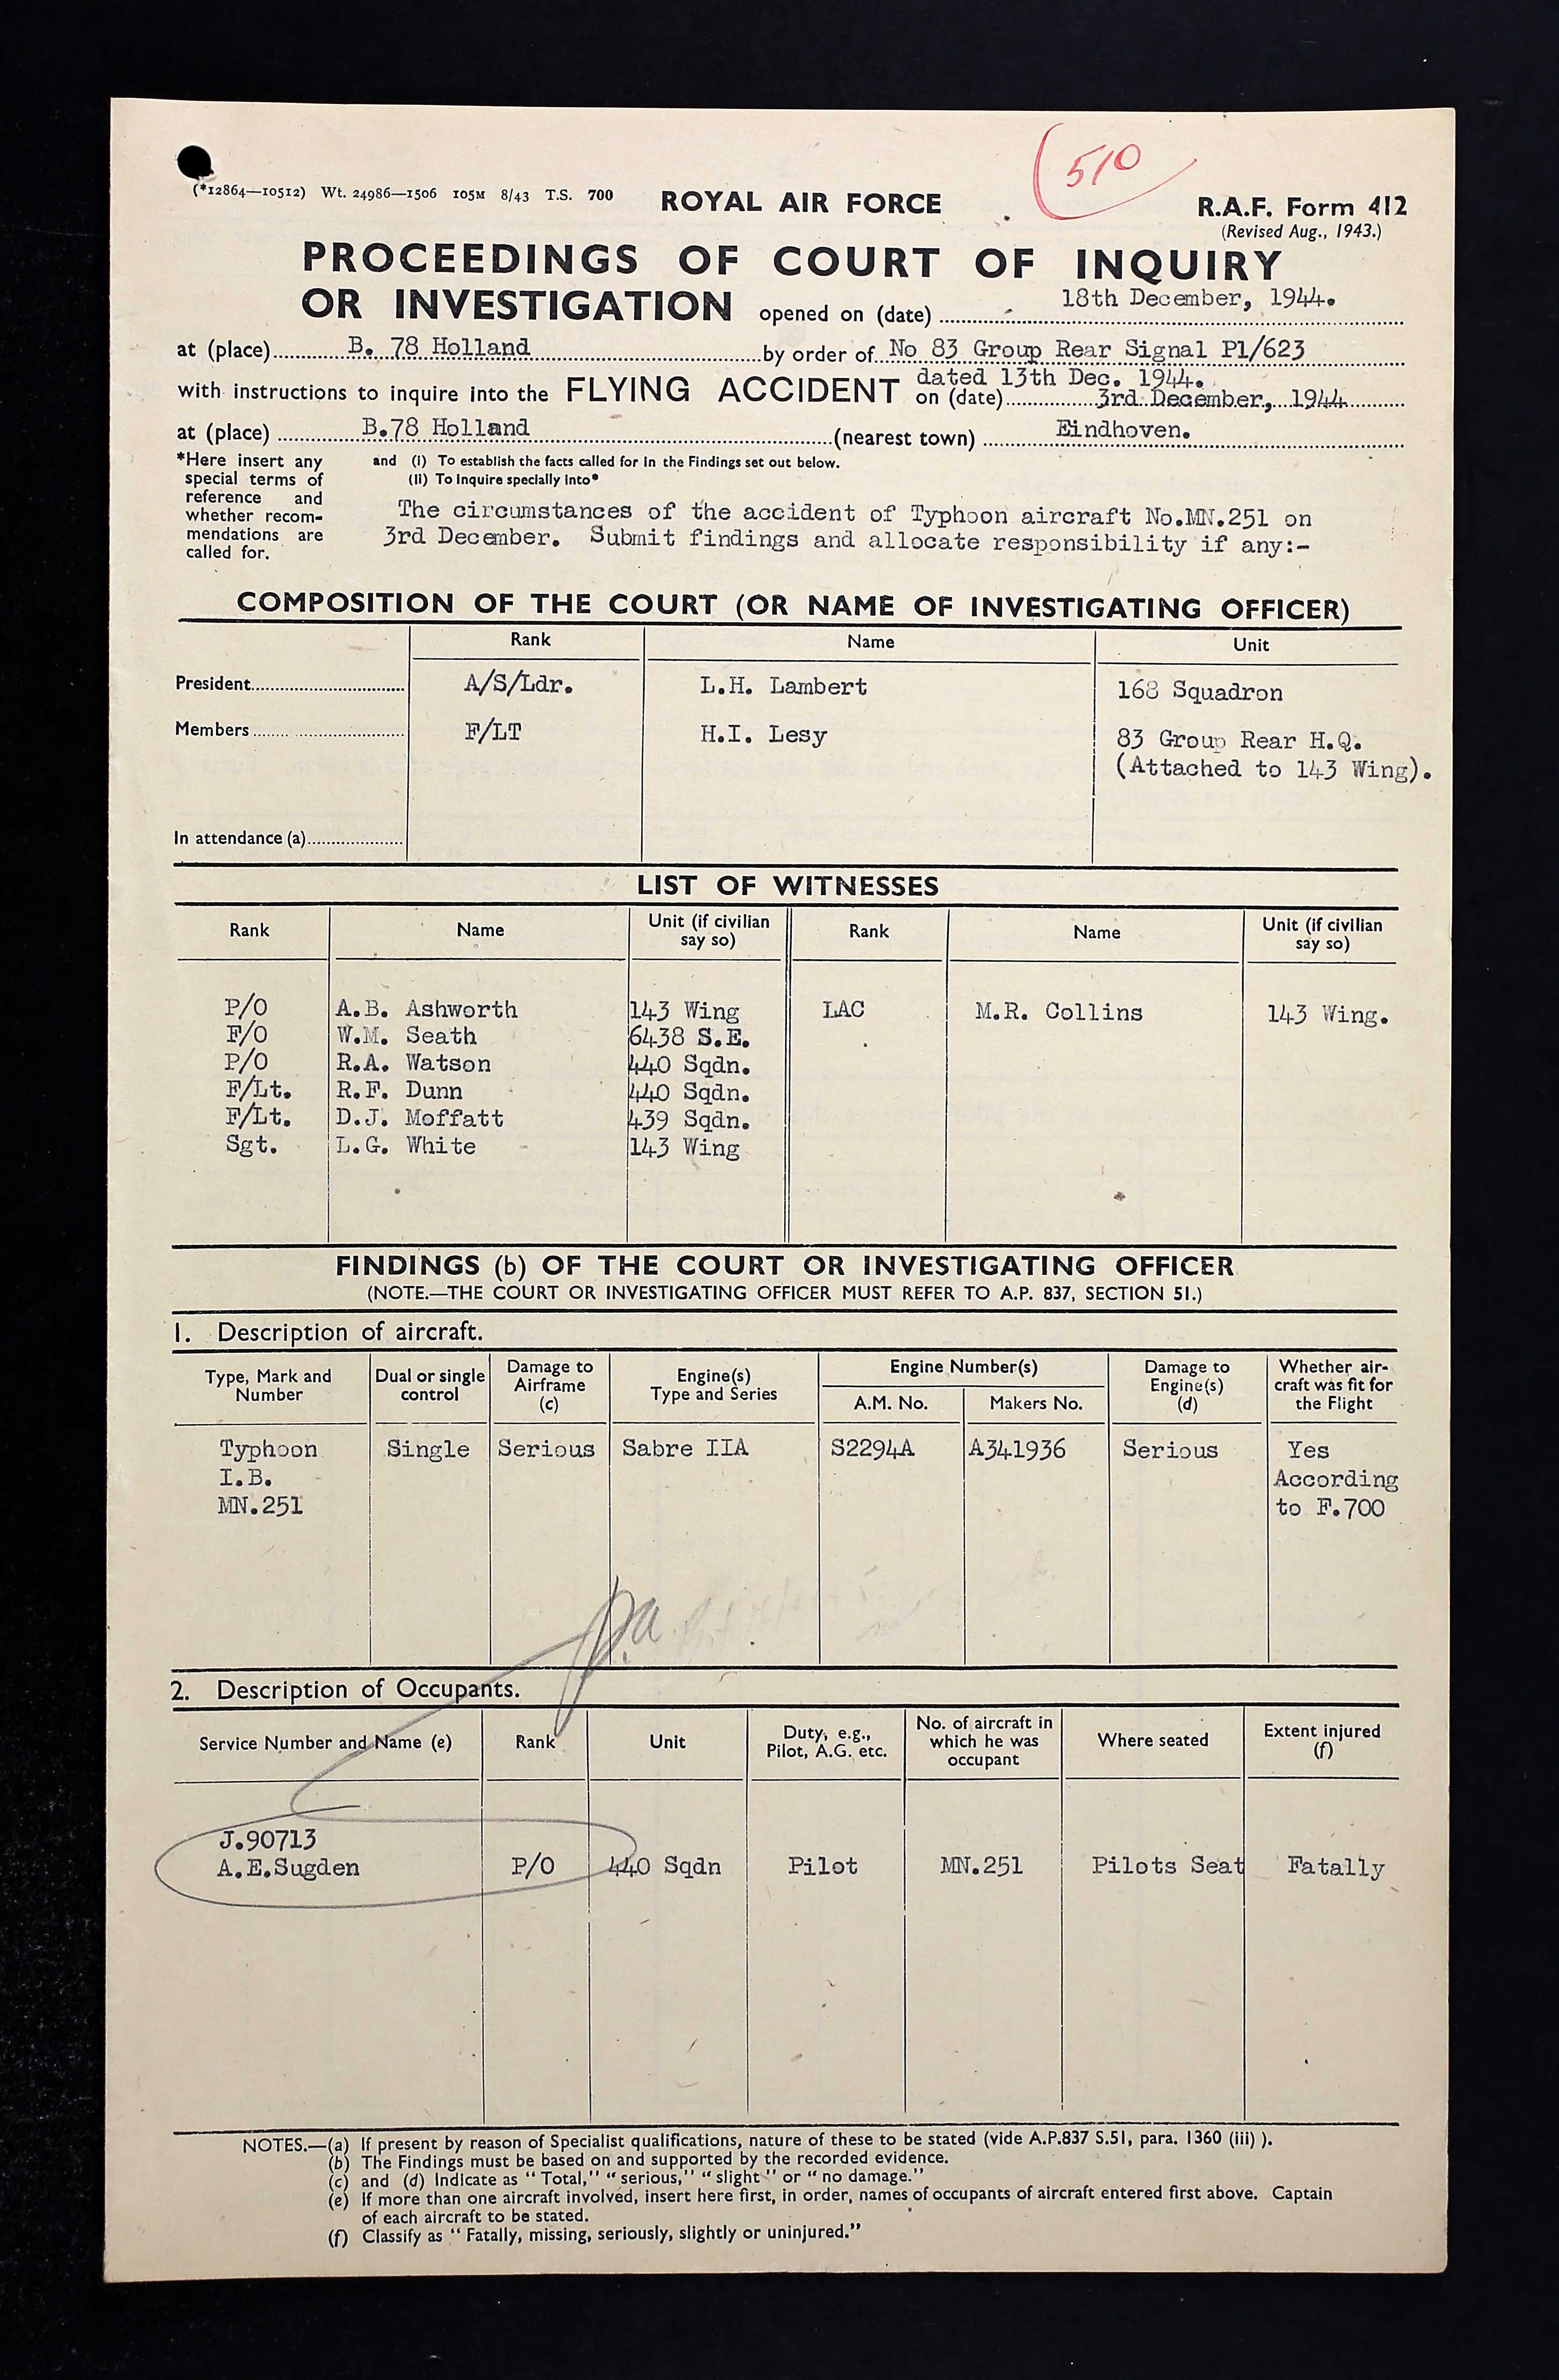 510
(*12864—10512) Wt. 24986—1506 105M 8/43 T.S. 700 ROYAL AIR FORCE R.A.F. Form 412
(Revised Aug., 1943.)
PROCEEDINGS OF COURT OF INQUIRY
OR INVESTIGATION opened on (date) 18th December, 1944.
at (place) B. 78 Holland by order of No 83 Group Rear Signal P1/623
dated 13th Dec. 1944.
with instructions to inquire into the FLYING ACCIDENT on (date) 3rd December, 1944
at (place) B.78 Holland (nearest town) Eindhoven.
*Here insert any special terms of reference and whether recom-mendations are called for.
and (i) To establish the facts called for in the Findings set out below.
(ii) To inquire specially into*
The circumstances of the accident of Typhoon aircraft No.MN.251 on
3rd December. Submit findings and allocate responsibility if any:-
COMPOSITION OF THE COURT (OR NAME OF INVESTIGATING OFFICER)
Rank Name Unit
President A/S/Ldr. L.H. Lambert 168 Squadron
Members F/LT H.I. Lesy 83 Group Rear H.Q.
(Attached to 143 Wing).
In attendance (a)
LIST OF WITNESSES
Rank Name Unit (if civilian say so) Rank Name Unit (if civilian say so)
P/O A.B. Ashworth 143 Wing LAC M.R. Collins 143 Wing.
F/O W.M. Seath 6438 S.E.
P/O R.A. Watson 440 Sqdn.
F/Lt. R.F. Dunn 440 Sqdn.
F/Lt. D.J. Moffatt 439 Sqdn.
Sgt. L.G. White 143 Wing
FINDINGS (b) OF THE COURT OR INVESTIGATING OFFICER
(NOTE.—THE COURT OR INVESTIGATING OFFICER MUST REFER TO A.P. 837, SECTION 51.)
1. Description of aircraft.
Type, Mark and Number Dual or single control Damage to Airframe (c) Engine(s) Type and Series Engine Number(s) A.M. No. Makers No. Damage to Engine(s) (d) Whether air-craft was fit for the Flight
Typhoon Single Serious Sabre IIA S2294A A341936 Serious Yes
I.B. According
MN.251 to F.700
p.a.
2. Description of Occupants.
Service Number and Name (e) Rank Unit Duty, e.g., Pilot, A.G. etc. No. of aircraft in which he was occupant Where seated Extent injured (f)
J.90713
A.E.Sugden P/O 440 Sqdn Pilot MN.251 Pilots Seat Fatally
NOTES.—(a) If present by reason of Specialist qualifications, nature of these to be stated (vide A.P.837 S.51, para. 1360 (iii) ).
(b) The Findings must be based on and supported by the recorded evidence.
(c) and (d) Indicate as “ Total,” “ serious,” “ slight ” or “ no damage.”
(e) If more than one aircraft involved, insert here first, in order, names of occupants of aircraft entered first above. Captain
of each aircraft to be stated.
(f) Classify as “ Fatally, missing, seriously, slightly or uninjured.”